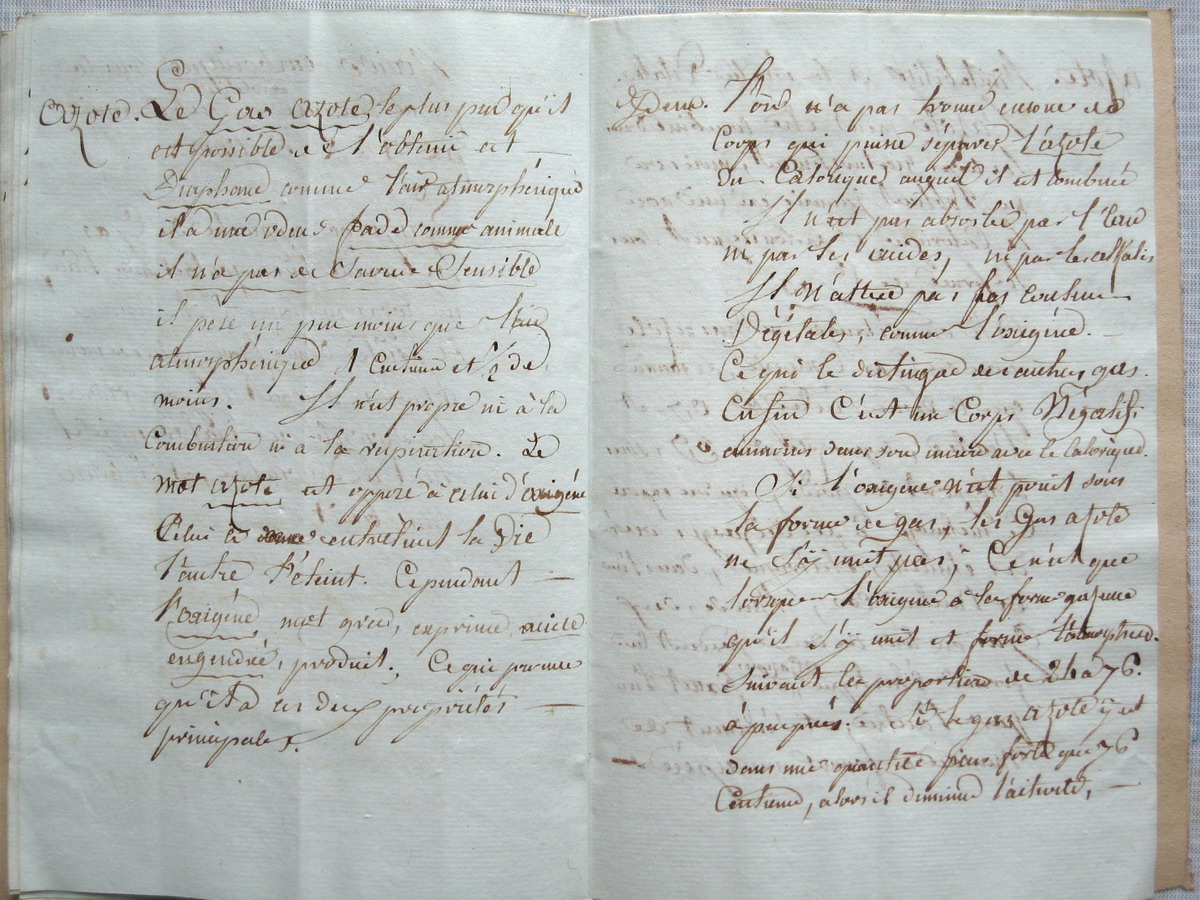 azote. Le Gas azote le plus pur qu'il
est possible de l'obtenir est
Diaphane comme l'air atmosphérique
il a une odeur fade comme animale
il n'a pas de Saveur Sensible
il pèse un peu moins que l'air
atmosphérique 1 Centieme et 1/2 de
moins. Il n'est propre ni à la
Combustion ni à la respiration. Le
mot azote est opposé à celui d'oxigéne
Celui ci entretient la Vie
l'autre l'éteint. Cependant
l'oxigéne, mot grec, exprime acide
engendré, produit. Ce qui prouve
qu'il a ces deux propriétés
principales.
Idem. l'on n'a pas trouvé encore de
Corps qui puisse séparer l'azote
du Calorique auquel il est combiné
Il n'est pas absorbé par l'Eau
ni par les acides, ni par les alkalis
Il n'attire pas les couleurs
Végétales, comme l'oxigéne.
Ce qui le distingue des autres gas.
Enfin C'est un Corps Négatif
au moins dans son union avec le Calorique.
Si l'oxigene n'est point sous
la forme de gas, les Gas azote
ne s'y unit pas; Ce n'est que
lorsque l'oxigene à la forme gazeuse
qu'il s'y unit et forme l'atmosphere.
Suivant les proportions de 24 a 76.
à peu près. Si le gas azote y est
dans une quantité plus forte que 76
Centieme, alors il diminue l'activité,